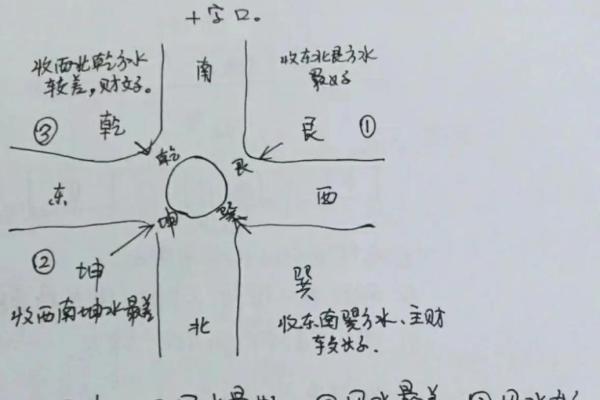 十字口。
收西北乾方水
较差,财好。
南
收东北艮方水
最好
③
乾
艮
①
乾
艮
东
西
坤
巽
②
坤
巽
收西南坤水最差
北
收东南巽方水、主财
较好.